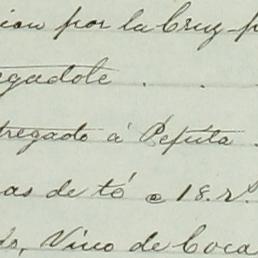 cion por la Cruz p
egadote . .
tregado á Pepita .
as de té a 18. r.^s
do, Vino de Coca